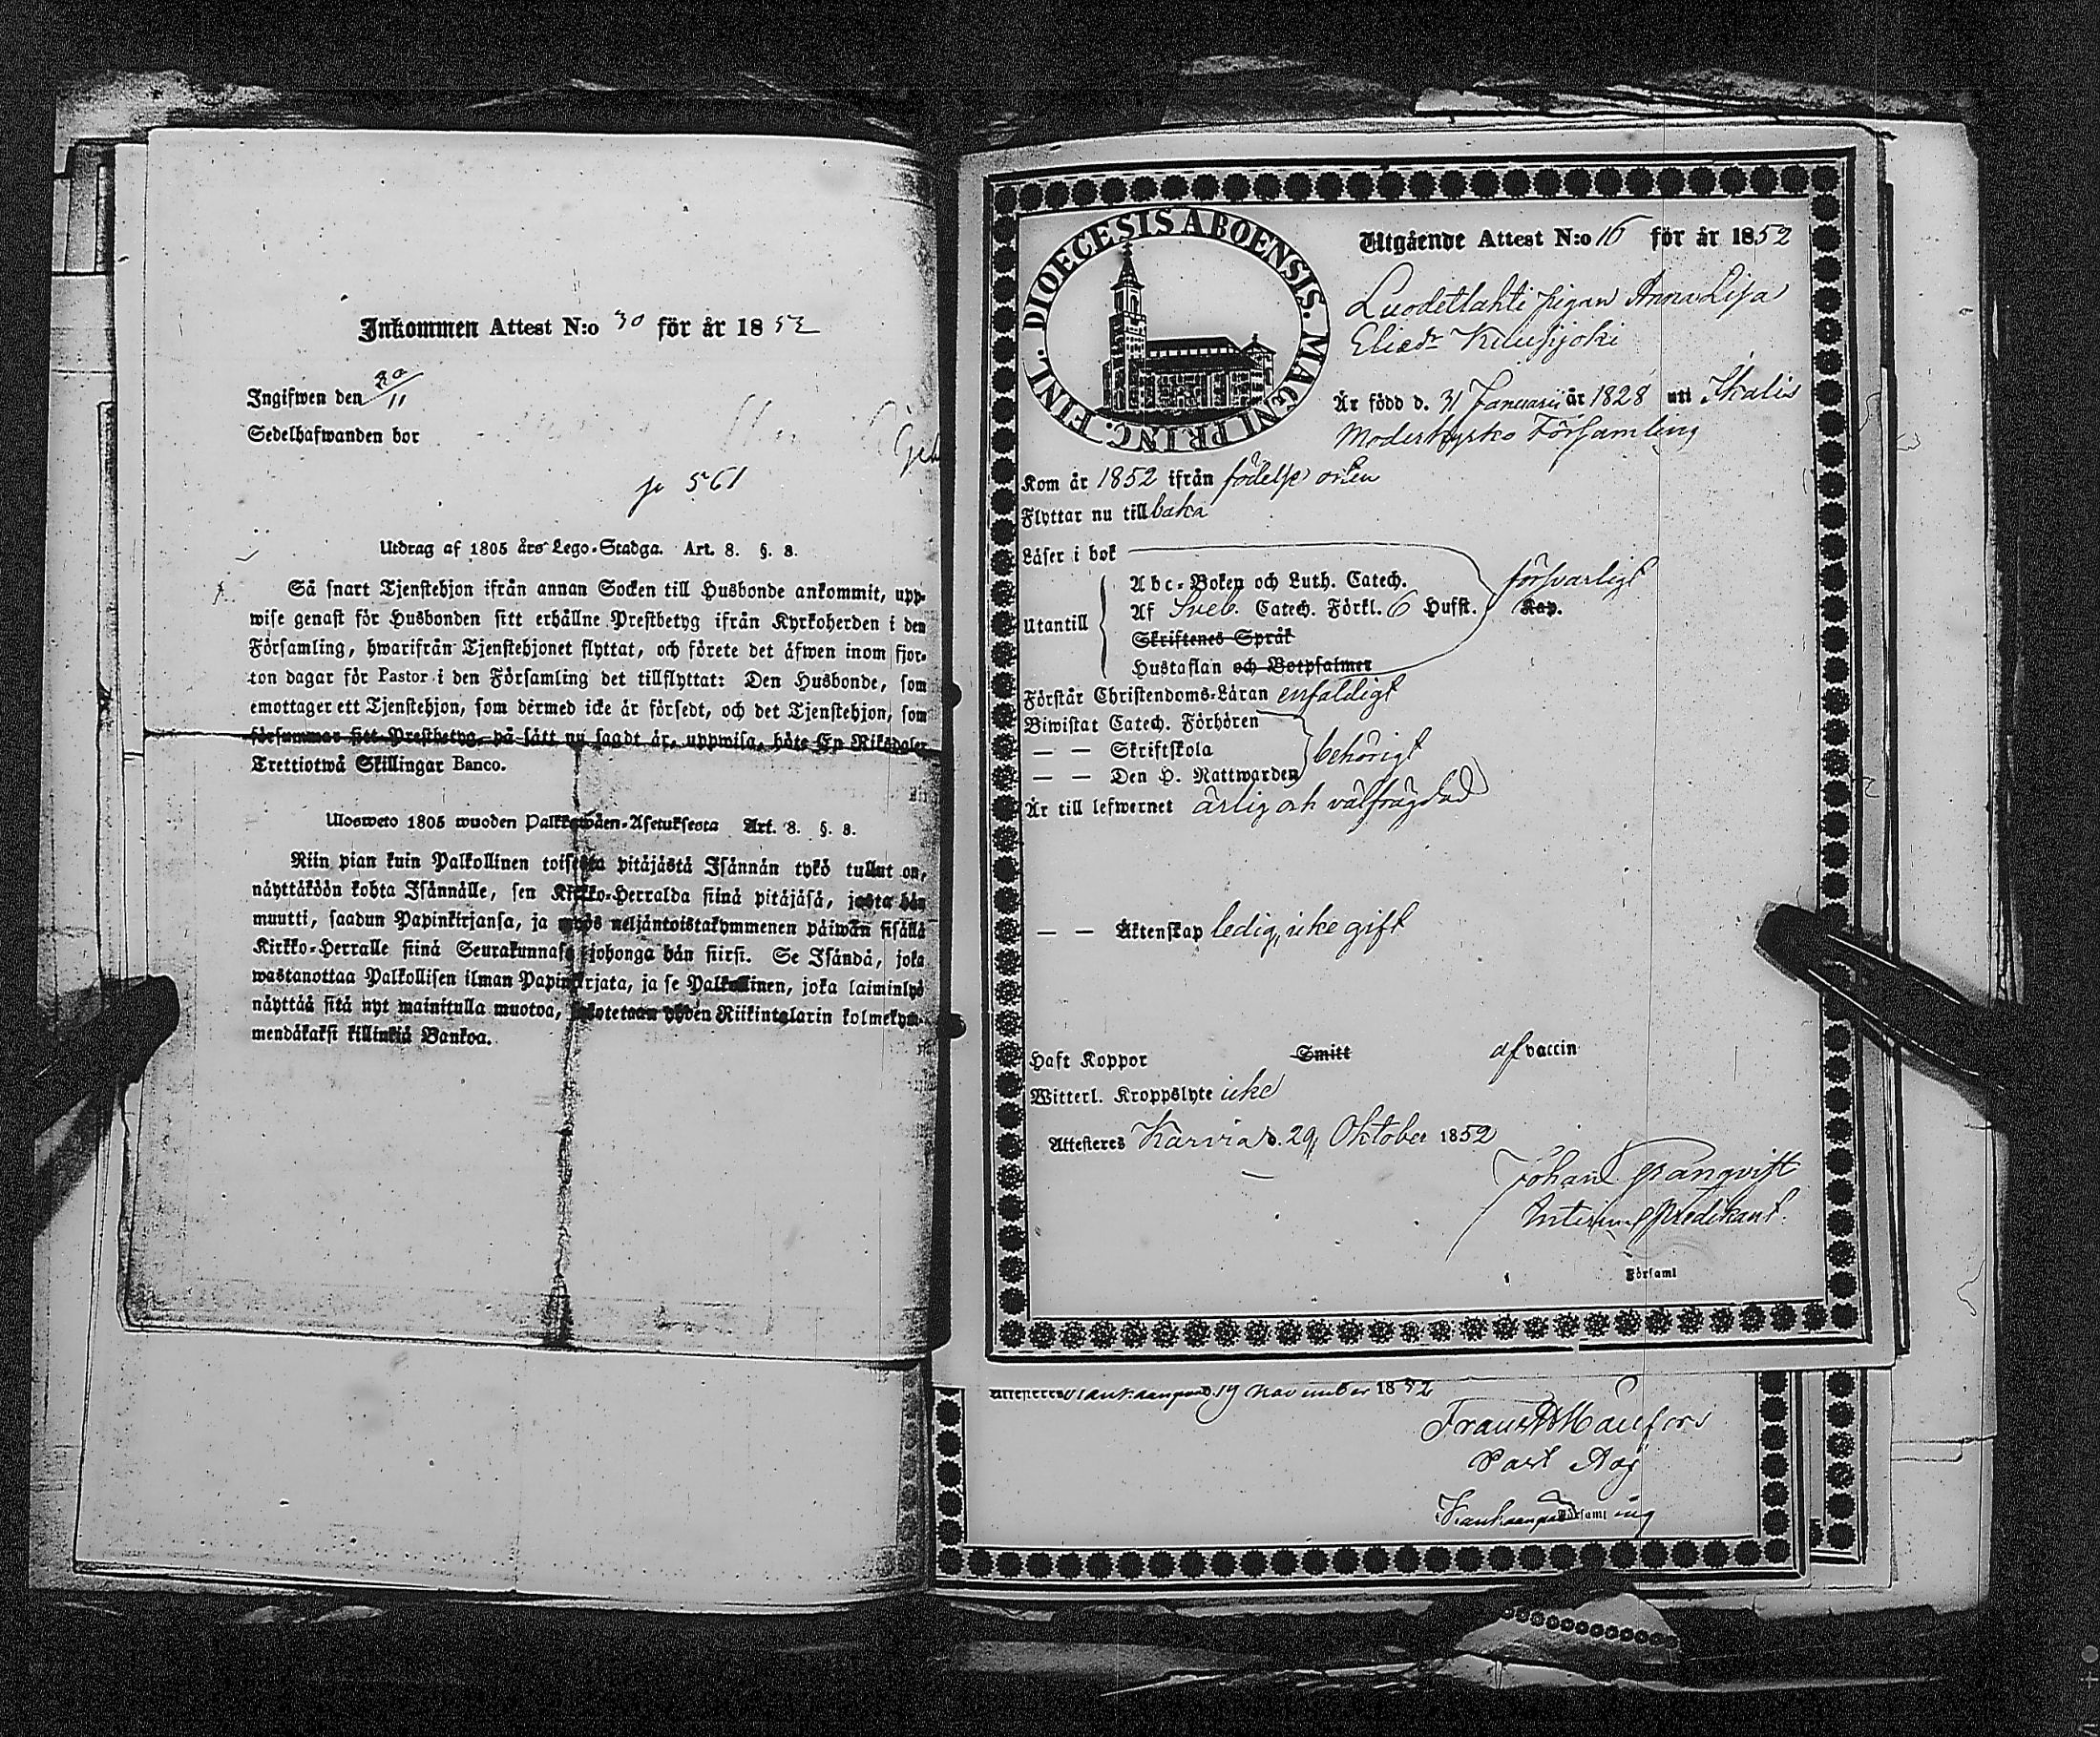 Inkommen Attest N:o 30 för år 1852
Ingifwen den 20/11
Sedelhafwanden bor
561
Utdrag af 1805 års Lego-Stadga. Art. 8. §. 8.
Så snart Tjenstehjon ifrån annan Socken till Husbonde ankommit, upp-
wise genast för Husbonden sitt erhållne Prestbetyg ifrån Kyrkoherden i den
Församling, hwarifrån Tjenstehjonet flyttat, och förete det äfwen inom fjor-
ton dagar för Pastor i den Församling det tillflyttat: Den Husbonde, som
emottager ett Tjenstehjon, som dermed icke är försedt, och det Tjenstehjon, som
försummar sitt Prestbetyg, på sätt nu sagdt är, uppwisa, böte En Riksdaler
Trettiotwå Skillingar Banco.
Ulosweto 1805 wuoden Palkkawäen-Asetuksesta Art. 8. §. 8.
Niin pian kuin Palkollinen toisesta pitäjästä Isännän tykö tullut on,
näyttäköön kohta Isännälle, sen Kirkko-Herralda siinä pitäjäsä, josta hän
muutti, saadun Papinkirjansa, ja myös neljäntoistakymmenen päiwän sisällä
Kirkko-Herralle siinä Seurakunnasa johonga hän siirsi. Se Isändä, joka
wastanottaa Palkollisen ilman Papinkirjata, ja se Palkollinen, joka laiminlyö
näyttää sitä nyt mainitulla muotoa, sakotetaan yhden Riikintalarin kolmekym-
mendäkaksi killinkiä Bankoa.
DIOECESIS ABOENSIS. MAGNI PRINC. FINL.
Utgående Attest N:o 16 för år 1852
Luodetlahti pigan Anna Lisa
Eliædr Kilusijoki
Är född d. 31 Januarii år 1828 uti Ikalis
Moderkyrko Församling
Kom år 1852 ifrån födelse orten
Flyttar nu till baka
Läser i bok
Abc-Boken och Luth. Catech.
försvarligt
Utantill
Af Sveb. Catech. Förkl. 6 Hufst. Kap.
Skriftenes Språk
Hustaflan och Botpsalmer
Förstår Christendoms-Läran enfaldigt
Biwistat Catech. Förhören
— — Skriftskola
behörigt
— — Den H. Nattwarden
Är till lefwernet ärlig och välfrägdad
— — Äktenskap ledig, icke gift
Haft Koppor Smitt af vaccin
Witterl. Kroppslyte icke
Attesteres Karvia d. 29 Oktober 1852
Johan Granqvist
Interims Predikant.
i Församl
Attesteres Kankaanpää d. 19 November 1852
Frans Malfors
Past Adj
Kankaanpää Församl ing